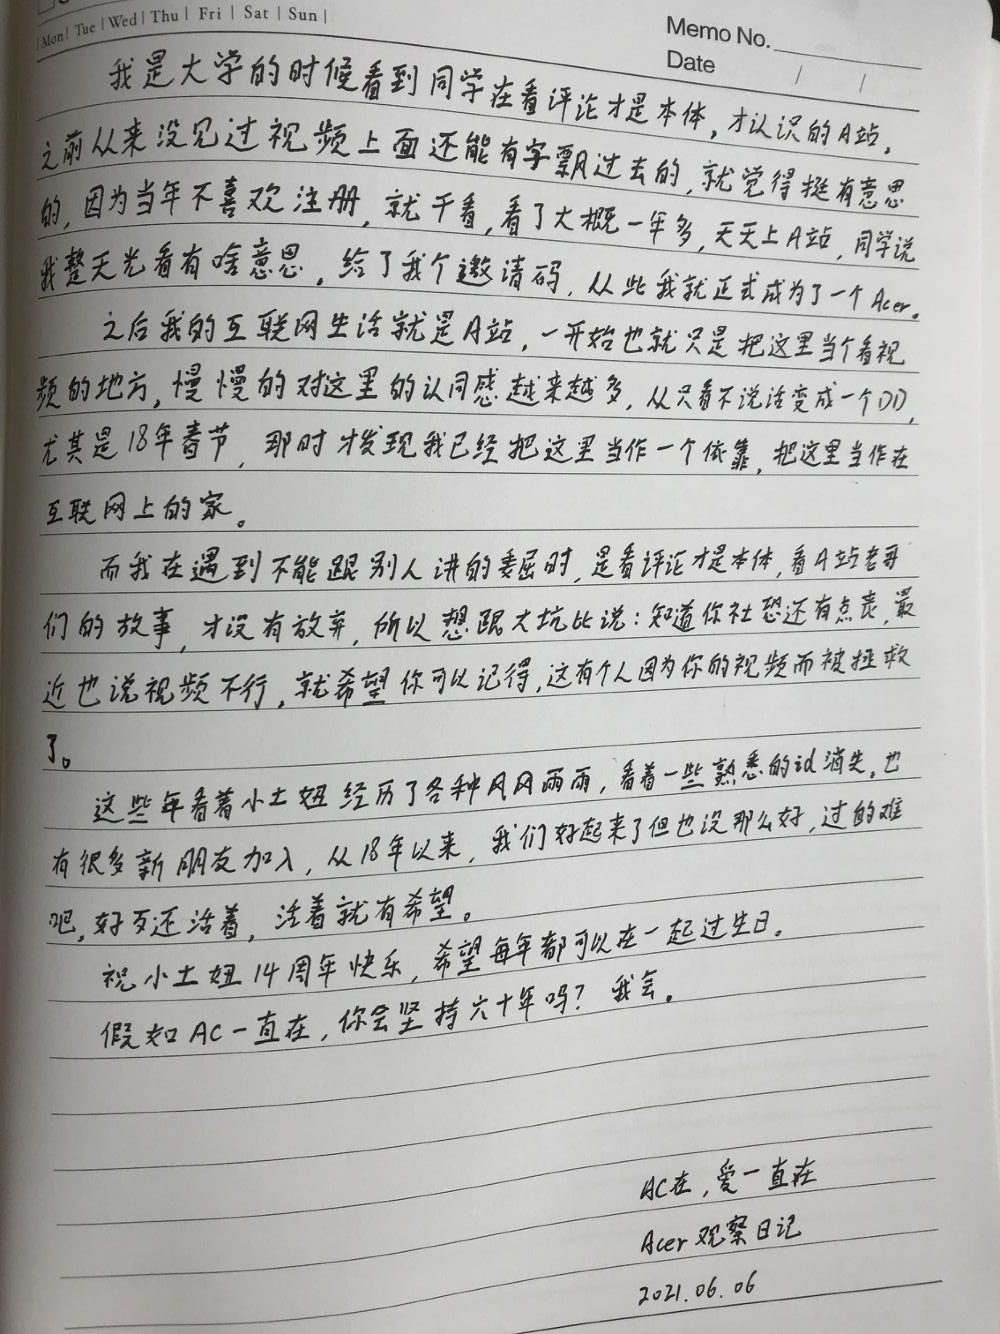 Mon | Tue | Wed | Thu | Fri | Sat | Sun |
Memo No.
Date / /
我是大学的时候看到同学在看评论才是本体，才认识的A站，
之前从来没见过视频上面还能有字飘过去的，就觉得挺有意思
的，因为当年不喜欢注册，就干看，看了大概一年多，天天上A站，同学说
我整天光看有啥意思，给了我个邀请码，从些我就正式成为了一个Acer。
之后我的互联网生活就是A站，一开始也就只是把这里当个看视
频的地方，慢慢的对这里的认同感越来越多，从只看不说话变成一个DD，
尤其是18年春节，那时才发现我已经把这里当作一个依靠，把这里当作在
互联网上的家。
而我在遇到不能跟别人讲的委屈时，是看评论才是本体，看A站老哥
们的故事，才没有放弃，所以想跟大坑比说：知道你社恐还有点丧，最
近也说视频不行，就希望你可以记得，这有个人因为你的视频而被拯救
了。
这些年看着小土妞经历了各种风风雨雨，看着一些熟悉的id消失，也
有很多新朋友加入，从18年以来，我们好起来了但也没那么好，过的难
吧，好歹还活着，活着就有希望。
祝小土妞14周年快乐，希望每年都可以在一起过生日。
假如AC一直在，你会坚持六十年吗？我会。
AC在，爱一直在
Acer观察日记
2021.06.06